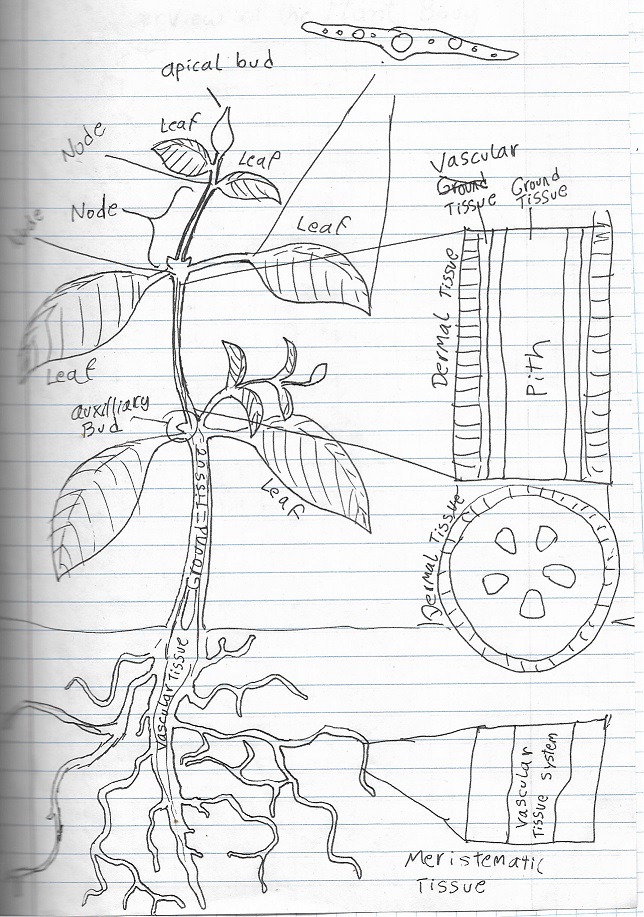 apical bud
Leaf
Leaf
Node
Node
Node
Leaf
Leaf
auxilliary
Bud
Leaf
Ground Tissue
Vascular Tissue
Vascular
Ground
Tissue
Ground
Tissue
Dermal Tissue
Pith
Dermal Tissue
Vascular
Tissue System
Meristematic
Tissue